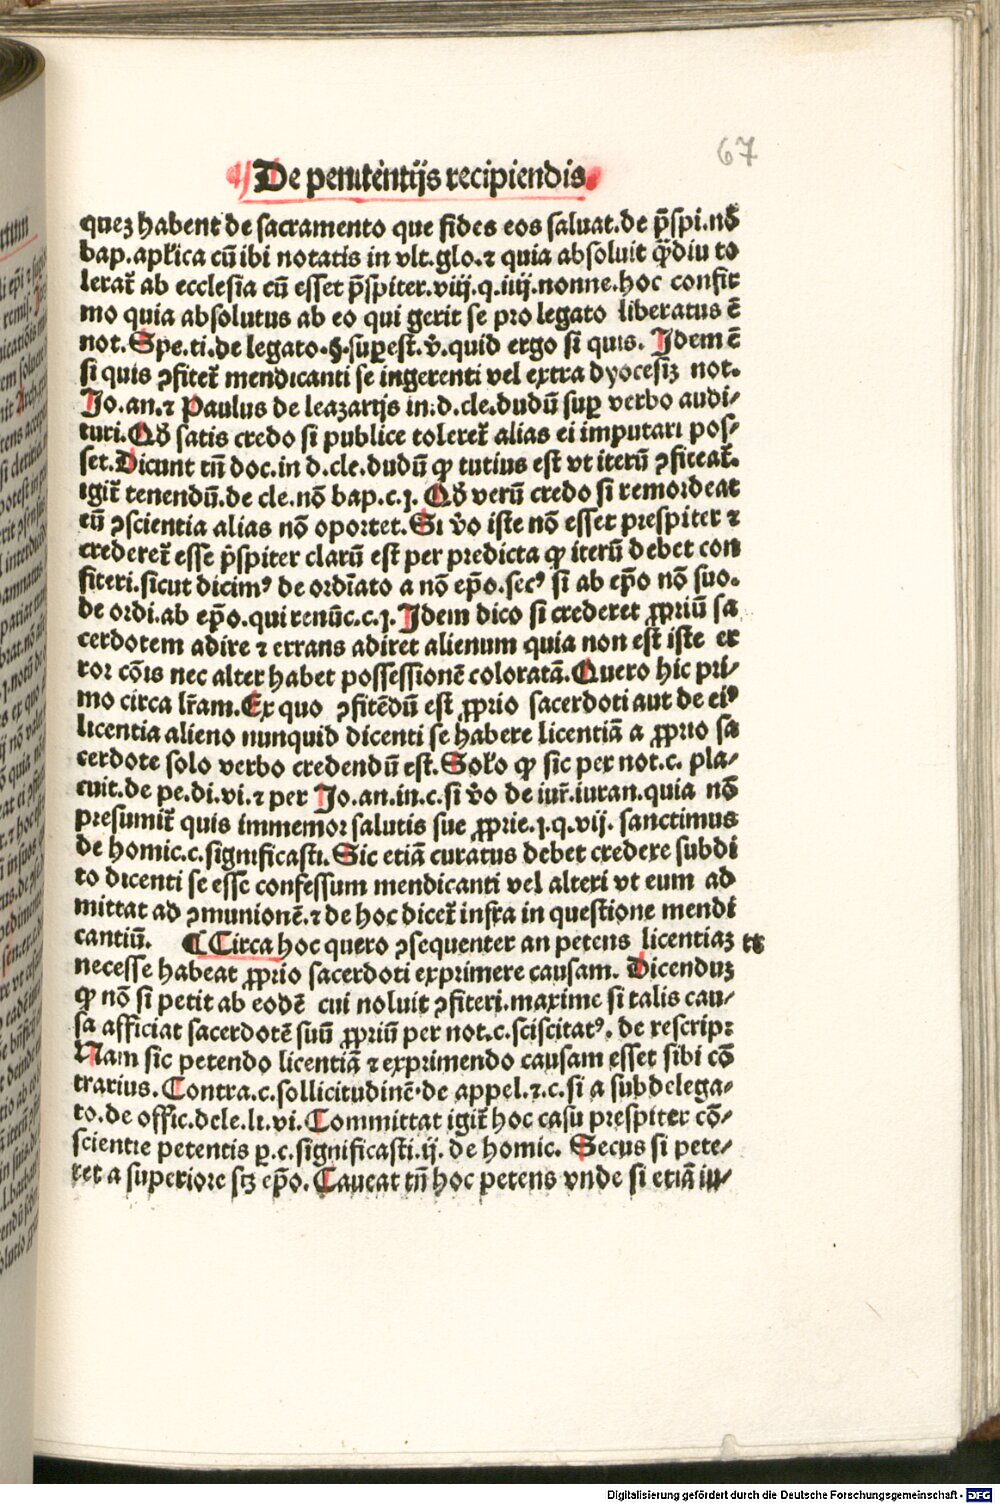 67
De penitentijs recipiendis
quez habent de sacramento que fides eos saluat.de p̄spi.nō
bap.apl̄ica cū ibi notatis in vlt.glo.⁊ quia absoluit q̄diu to
lerat᷑ ab ecclesia cū esset p̄spiter.viij.q.iiij.nonne.hoc confir
mo quia absolutus ab eo qui gerit se pro legato liberatus ē
not.Spe.ti.de legato.§.suꝑest.v̄.quid ergo si quis. Idem ē
si quis ꝯfitet᷑ mendicanti se ingerenti vel extra dyocesiz not.
Jo.an.⁊ Paulus de leazarijs in.d.cle.dudū suꝑ verbo audi⸗
turi.Qd̄ satis credo si publice toleret᷑ alias ei imputari pos⸗
set.Dicunt tn̄ doc.in d.cle.dudū ꝙ tutius est vt iterū ꝯfiteat᷑.
igit᷑ tenendū.de cle.nō bap.c.j. Qd̄ verū credo si remordeat
eū ꝯscientia alias nō oportet.Si v̄o iste nō esset prespiter ⁊
crederet᷑ esse p̄spiter clarū est per predicta ꝙ iterū debet con
fiteri.sicut dicimꝰ de ordīato a nō ep̄o.secꝰ si ab ep̄o nō suo.
de ordi.ab ep̄o.qui renūc.c.j. Idem dico si crederet ꝓpriū sa
cerdotem adire ⁊ errans adiret alienum quia non est iste er
ror cōis nec alter habet possessionē coloratā.Quero hic pri⸗
mo circa lr̄am.Ex quo ꝯfitēdū est ꝓprio sacerdoti aut de eiꝰ
licentia alieno nunquid dicenti se habere licentiā a ꝓprio sa
cerdote solo verbo credendū est.Solo ꝙ sic per not.c. pla⸗
cuit.de pe.di.vi.⁊ per Jo.an.in.c.si v̄o de iur᷑.iuran.quia nō
presumit᷑ quis immemor salutis sue ꝓprie.j.q.vij. sanctimus
de homic.c.significasti.Sic etiā curatus debet credere subdi
to dicenti se esse confessum mendicanti vel alteri vt eum ad
mittat ad ꝯmunionē.⁊ de hoc dicet᷑ infra in questione mendi
cantiū. ¶ Circa hoc quero ꝯsequenter an petens licentiaz tt
necesse habeat ꝓprio sacerdoti exprimere causam. Dicenduz
ꝙ nō si petit ab eodē cui noluit ꝯfiteri.maxime si talis cau⸗
sa afficiat sacerdotē suū ꝓpriū per not.c.sciscitatꝰ. de rescrip:
Nam sic petendo licentiā ⁊ exprimendo causam esset sibi cō
trarius.Contra.c.sollicitudinē.de appel.⁊.c.si a subdelega⸗
to.de offic.dele.li.vi.Committat igit᷑ hoc casu prespiter cō⸗
scientie petentis ꝑ.c.significasti.ij. de homic. Secus si pete⸗
ret a superiore sꝫ ep̄o.Caueat tn̄ hoc petens vnde si etiā iu⸗
Digitalisierung gefördert durch die Deutsche Forschungsgemeinschaft - DFG